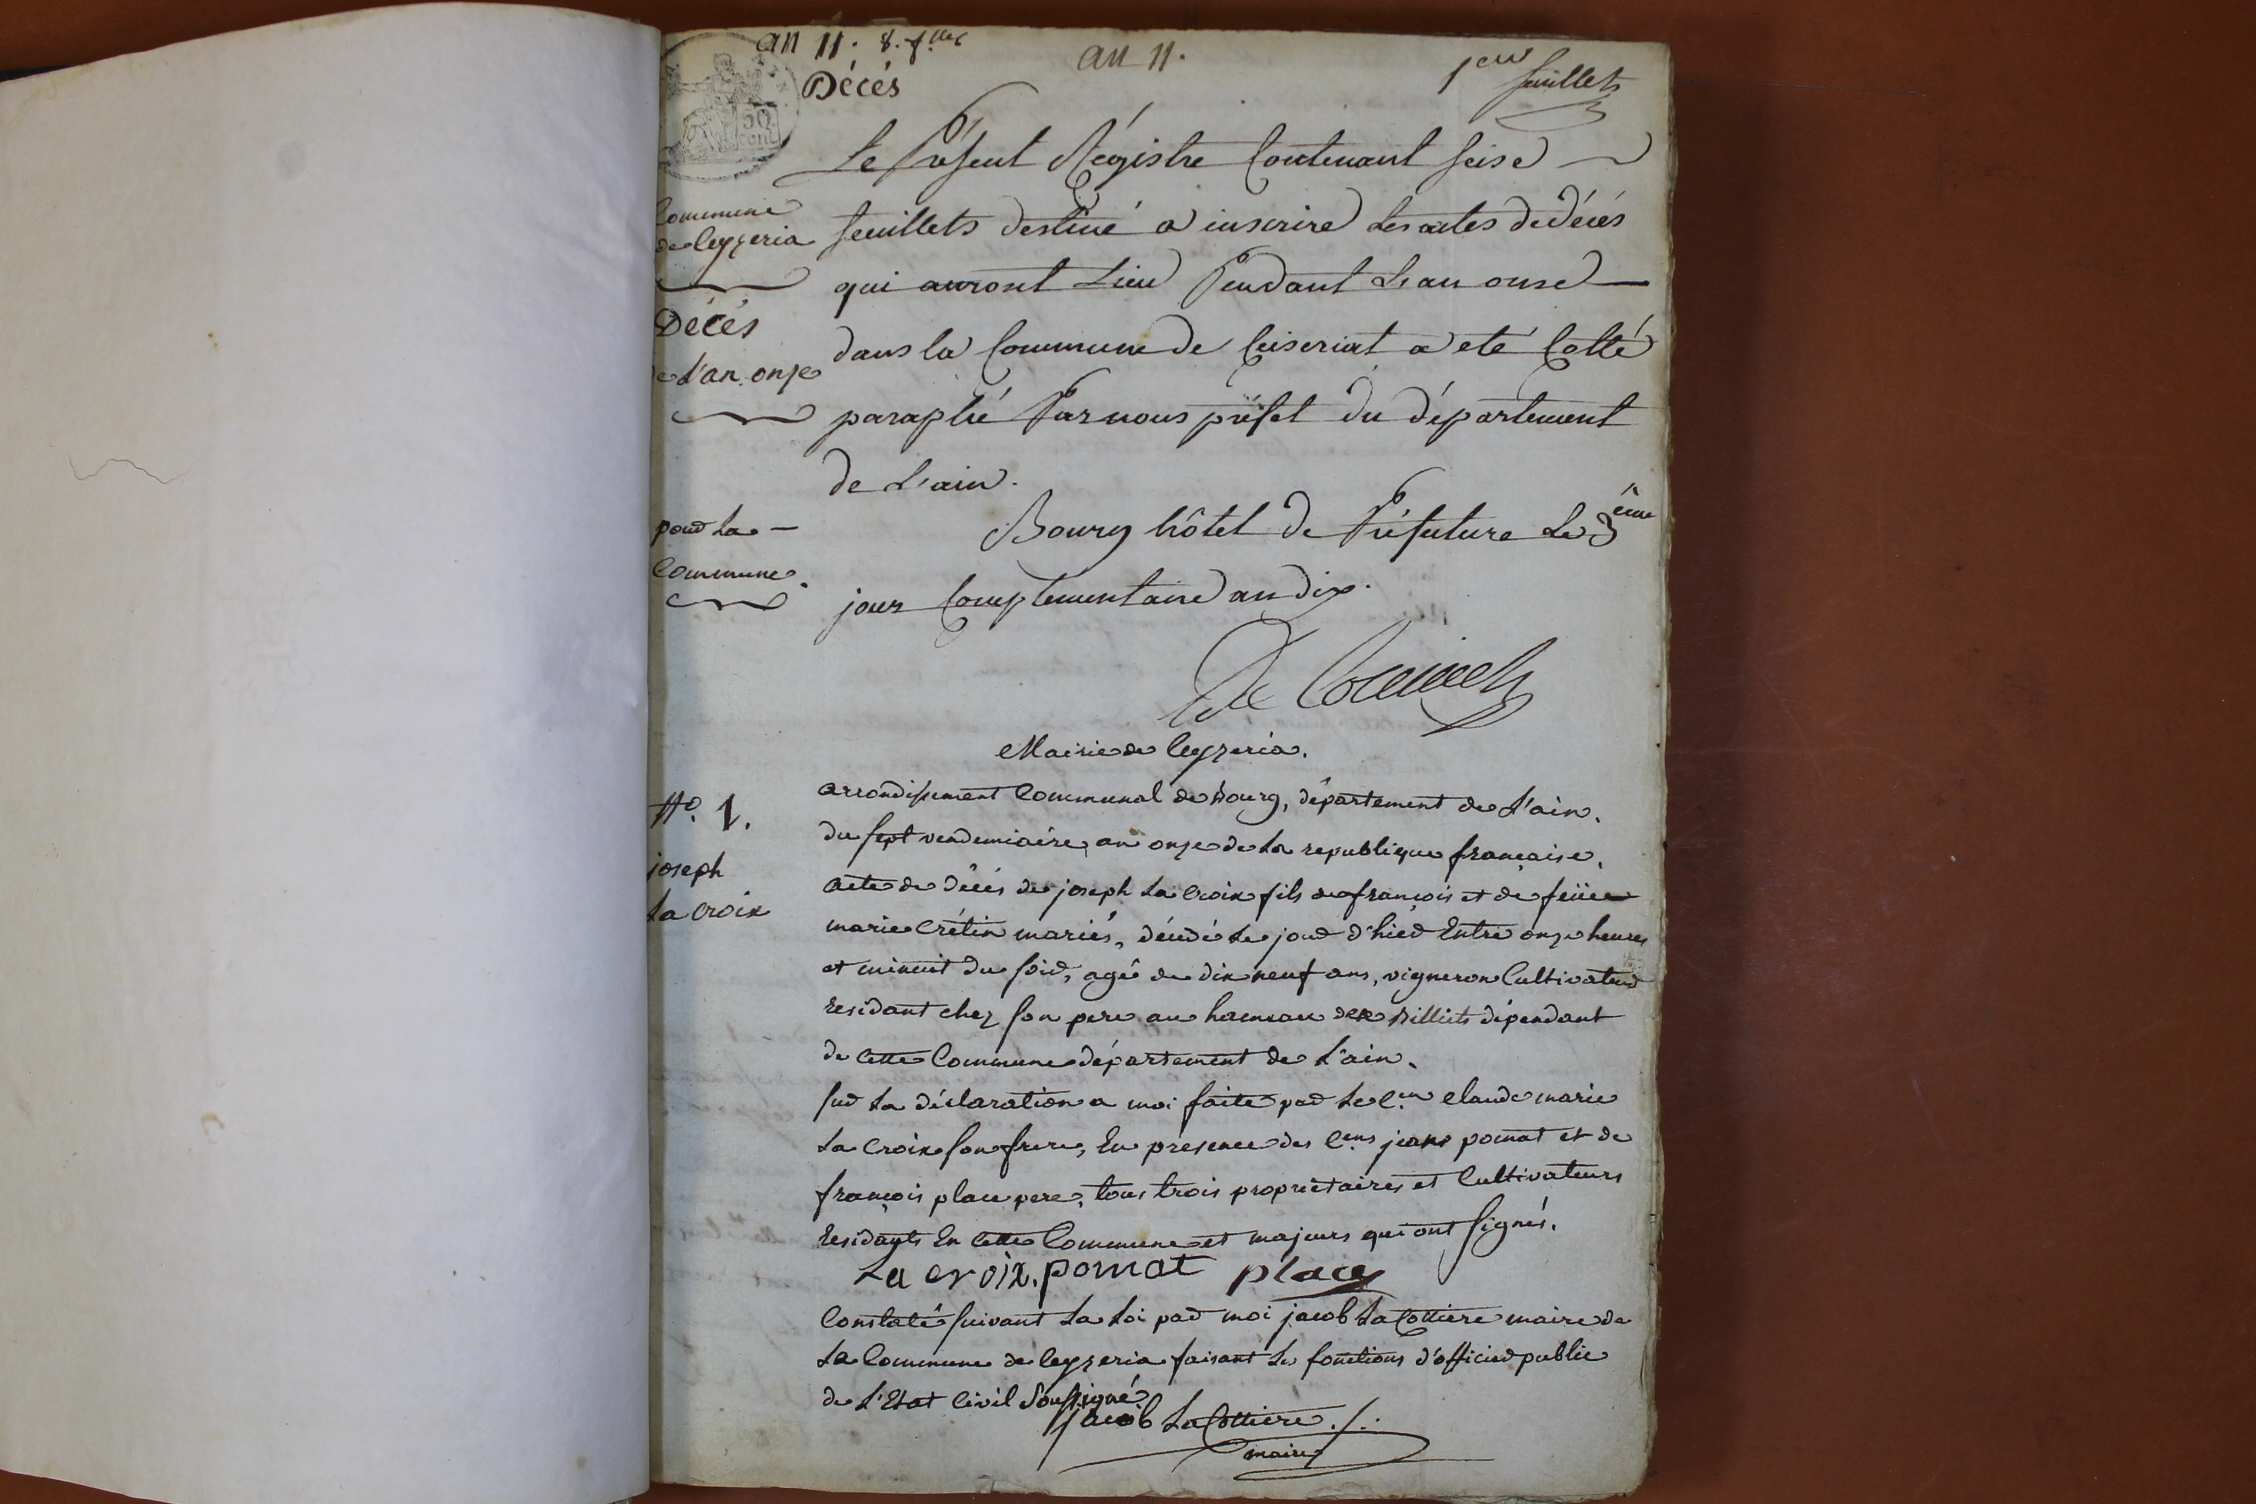 an 11. 8. f.lles
an 11.
1er feuillet
Décés
50
cent
Le Présent Régistre Contenant seise
Commune
de Ceyzeria
feuillets destiné a inscrire Les actes de décés
qui auront Lieu Pendant L'an onse
Décés
de L'an onze
dans la Commune de Ceiseriat a eté Cotté
paraphé Par nous préfet du département
de L'ain.
pour La
Commune.
Bourg hôtel de Préfecture Le 3eme
jour Complementaire an dix.
Mairie de Ceyzeria.
arrondissement Communal de Bourg, département de L'ain.
No. 1.
joseph
La croix
du sept vendemiaire, an onze de La republique française.
acte de décés de joseph La croix fils de françois et de feüe
marie Crétin mariés, décedé Le jour d'hier Entre onze heures
et minuit du soir, agé de dix neuf ans, vigneron Cultivateur
residant chez son pere au hameau des Billiets dépendant
de Cette Commune département de L'ain.
sur La déclaration a moi faite par Le C.en Claude marie
La croix son frere, En presence des C.ens jean pomat et de
françois place pere, tous trois proprietaires et Cultivateurs
Residants En Cette Commune et majeurs qui ont signés.
La croix. pomat place
Constaté suivant La Loi par moi jacob La Cottiere maire de
La Commune de Ceyzeria faisant Les fonctions d'officier public
de L'Etat Civil Soussigné.
jacob La Cottiere
maire